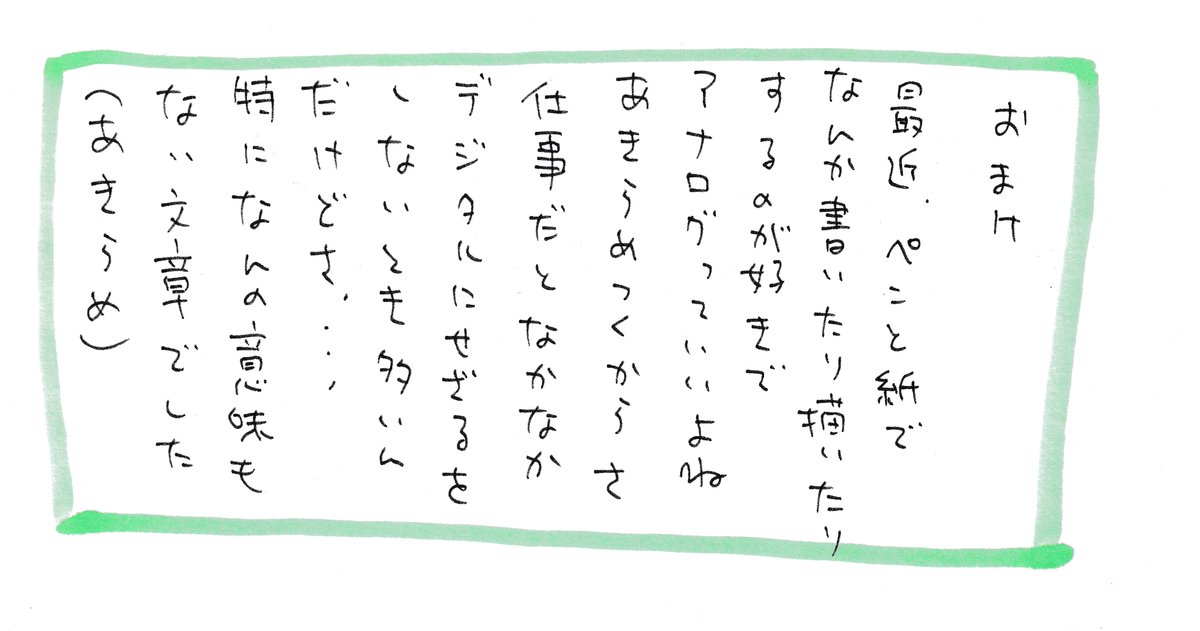 おまけ
最近、ペンと紙で
なんか書いたり描いたり
するのが好きで
アナログっていいよね
あきらめつくからさ
仕事だとなかなか
デジタルにせざるを
ないとき多いん
だけどさ、…、
特になんの意味も
ない文章でした
(あきらめ)